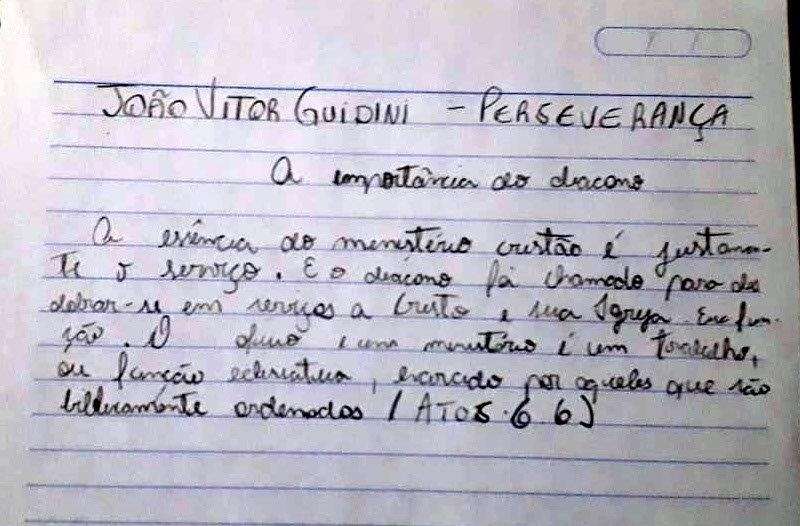 JOÃO VITOR GUIDINI - PERSEVERANÇA
A importância do diacono
A essência do menistério cristão é justamen-
te o serviço. E o diácono foi chamado para des
dobrar-se em serviços a Cristo e sua Igreja. Essa fun-
ção. O e um menistério é um trabalho,
ou função, exercido por aqueles que são
biblicamente ordenados (ATOS. 6 6)